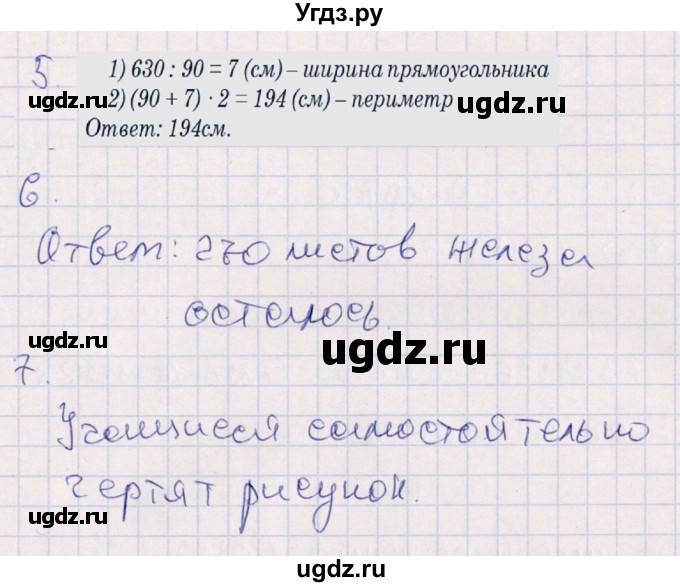 Угдз.ру
5
1) 630 : 90 = 7 (см) – ширина прямоугольника
ugdz.ru 2) (90 + 7) · 2 = 194 (см) – периметр ugdz.ru
Ответ: 194см.
6.
Ответ: 270 листов железа
осталось.
ugdz.ru ugdz.ru
7.
Учащиеся самостоятельно
чертят рисунок.
ugdz.ru ugdz.ru